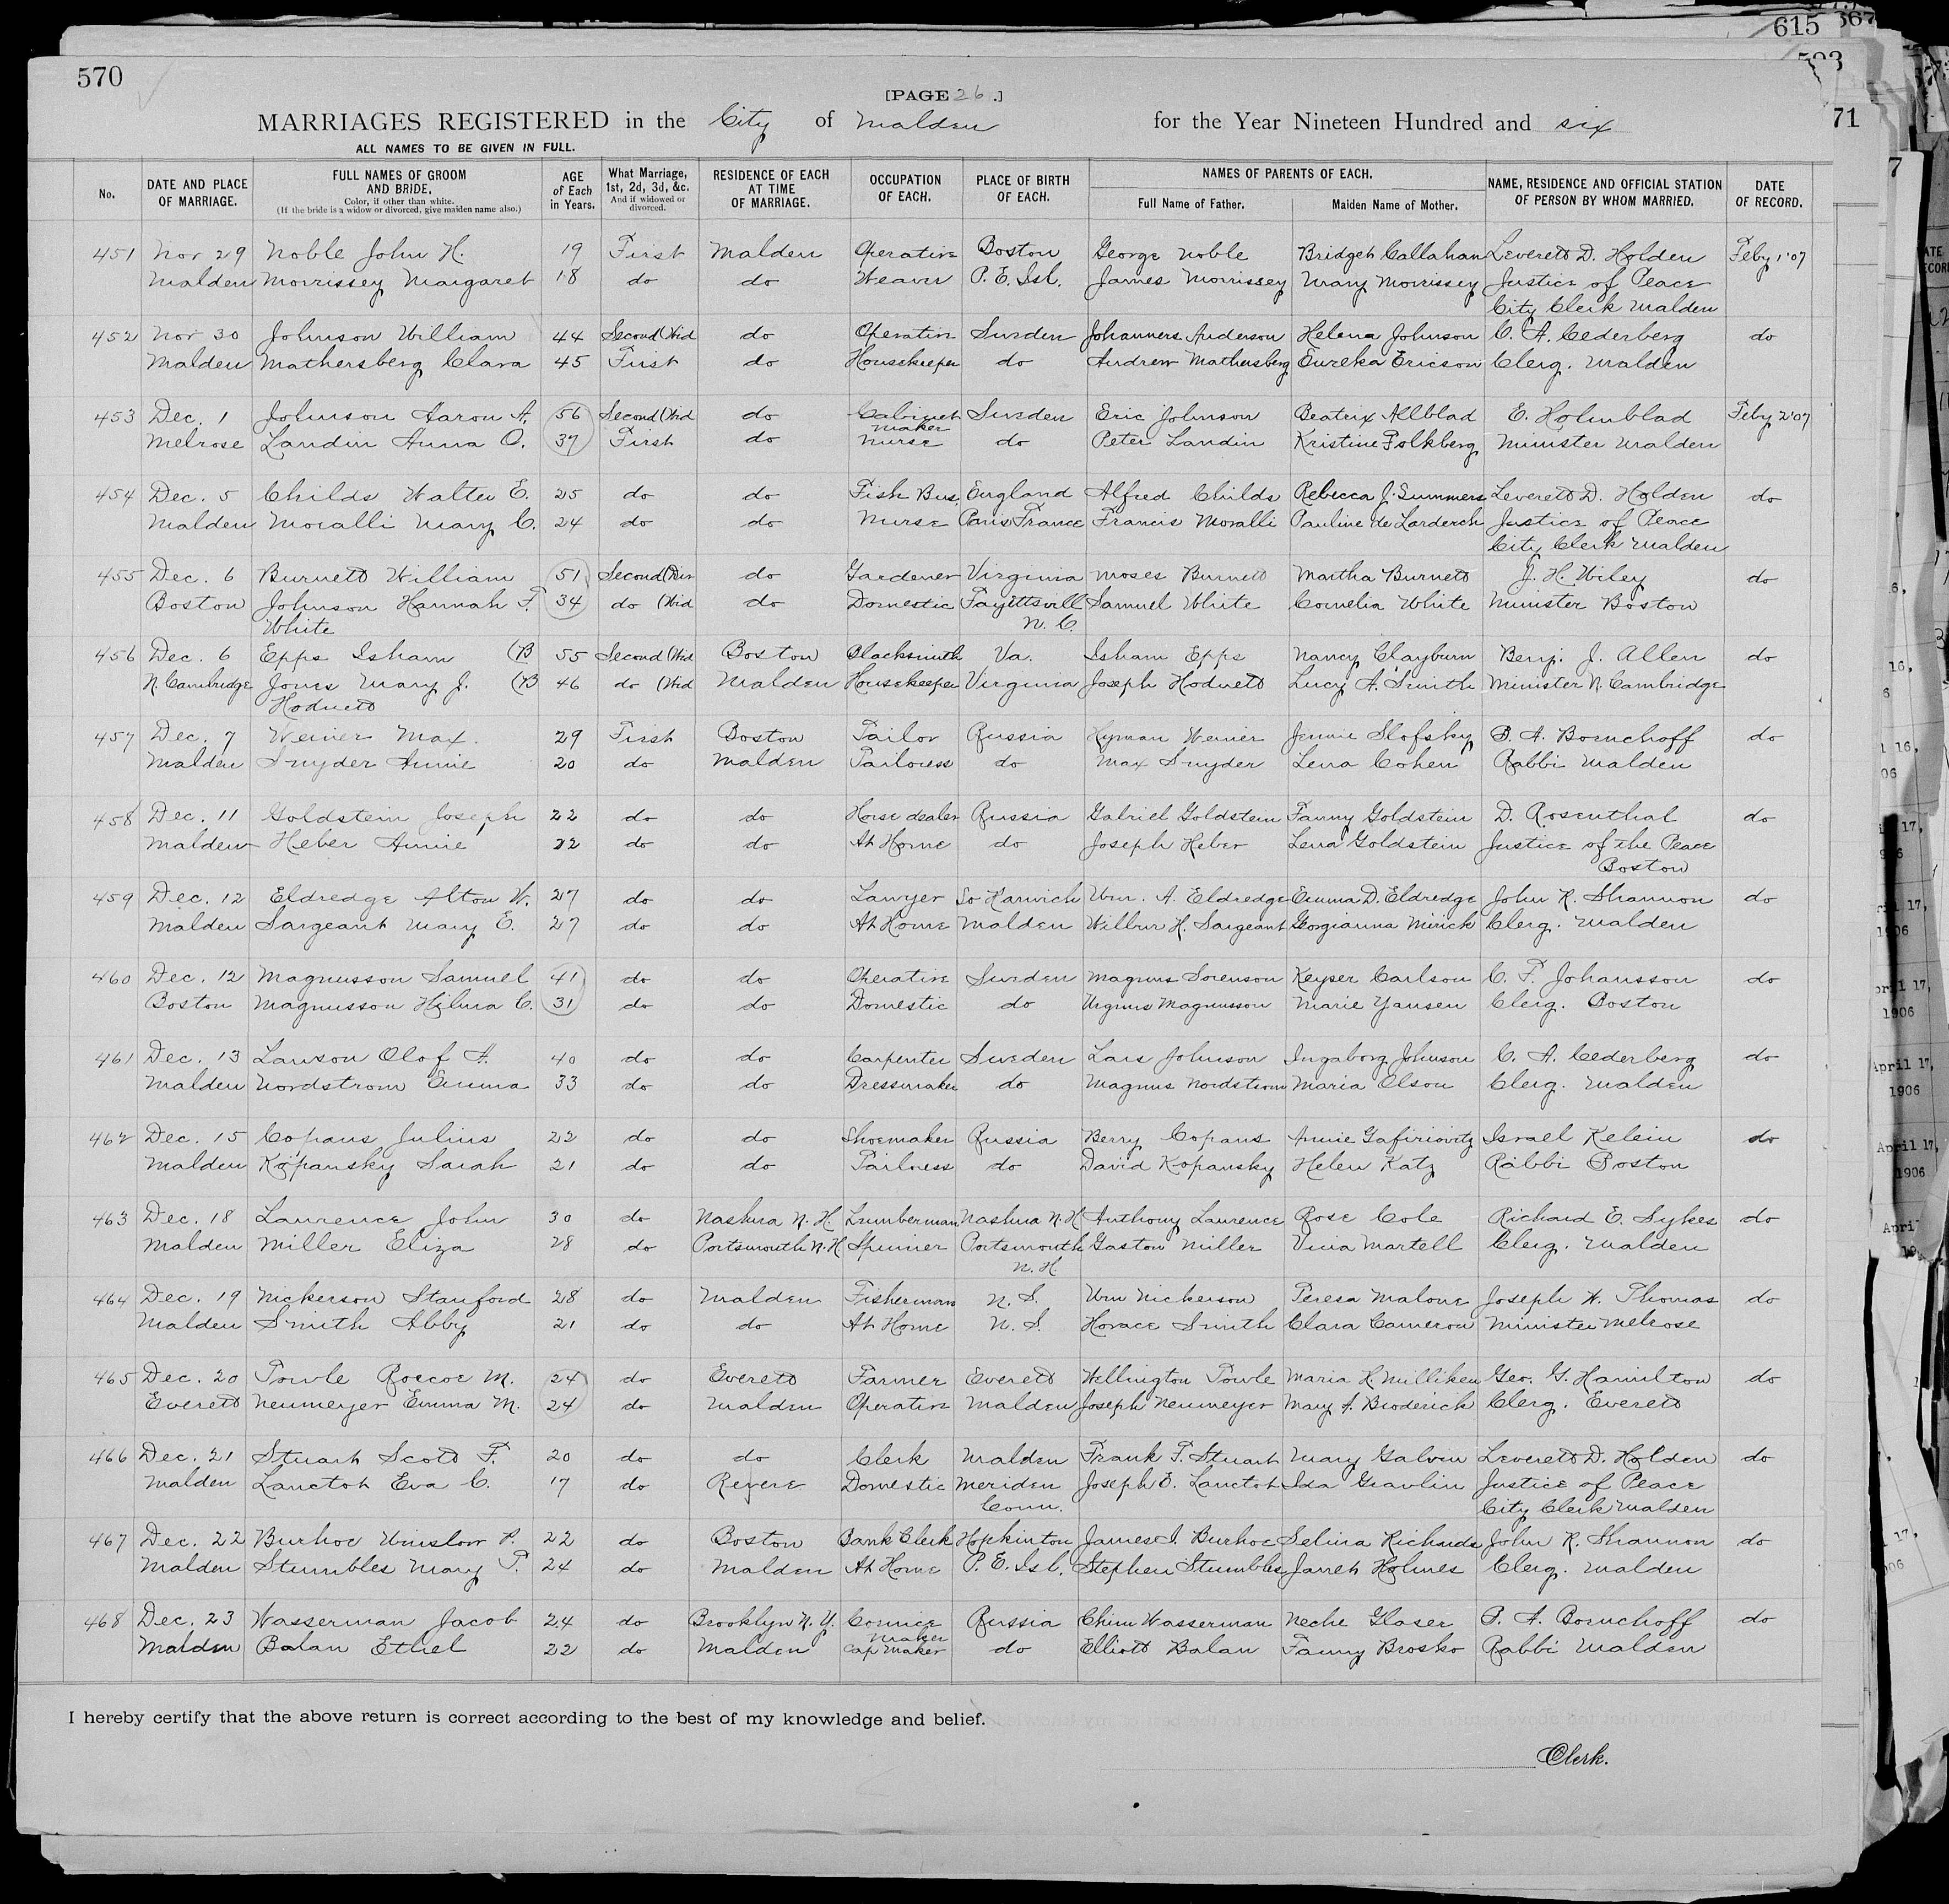 615 567
593
570
[PAGE 26.]
71
MARRIAGES REGISTERED in the City of Malden for the Year Nineteen Hundred and six
ALL NAMES TO BE GIVEN IN FULL.
No. DATE AND PLACE OF MARRIAGE. FULL NAMES OF GROOM AND BRIDE, Color, if other than white. (If the bride is a widow or divorced, give maiden name also.) AGE of Each in Years. What Marriage, 1st, 2d, 3d, &c. And if widowed or divorced. RESIDENCE OF EACH AT TIME OF MARRIAGE. OCCUPATION OF EACH. PLACE OF BIRTH OF EACH. NAMES OF PARENTS OF EACH. Full Name of Father. Maiden Name of Mother. NAME, RESIDENCE AND OFFICIAL STATION OF PERSON BY WHOM MARRIED. DATE OF RECORD.
451 Nov 29 Noble John H. 19 First Malden Operative Boston George Noble Bridget Callahan Leverett D. Holden Feby 1'07
Malden Morrissey Margaret 18 do do Weaver P. E. Isl. James Morrissey Mary Morrissey Justice of Peace
City Clerk Malden
452 Nov 30 Johnson William 44 Second (Wid do Operative Sweden Johanners Anderson Helena Johnson C. A. Cederberg do
Malden Mathersberg Clara 45 First do Housekeeper do Andrew Mathersberg Eureka Ericson Clerg. Malden
453 Dec. 1 Johnson Aaron A. 56 Second (Wid do Cabinet Sweden Eric Johnson Beatrix Allblad E. Holmblad Feby 2'07
maker
Melrose Landin Anna O. 37 First do Nurse do Peter Landin Kristine Folkberg Minister Malden
454 Dec. 5 Childs Walter E. 25 do do Fish Bus. England Alfred Childs Rebecca J. Summers Leverett D. Holden do
Malden Moralli Mary C. 24 do do Nurse Paris France Francis Moralli Pauline de Larderch Justice of Peace
City Clerk Malden
455 Dec. 6 Burnett William 51 Second (Div do Gardener Virginia Moses Burnett Martha Burnett J. H. Wiley do
Boston Johnson Hannah F. 34 do (Wid do Domestic Fayettsvill Samuel White Cornelia White Minister Boston
White N. C.
456 Dec. 6 Epps Isham (B 55 Second (Wid Boston Blacksmith Va. Isham Epps Nancy Clayburn Benj. J. Allen do
N. Cambridge Jones Mary J. (B 46 do (Wid Malden Housekeeper Virginia Joseph Hodnett Lucy A. Smith Minister N. Cambridge
Hodnett
457 Dec. 7 Weiner Max. 29 First Boston Tailor Russia Hyman Weiner Jennie Slofsky P. A. Boruchoff do
Malden Snyder Annie 20 do Malden Tailoress do Max Snyder Lena Cohen Rabbi Malden
458 Dec. 11 Goldstein Joseph 22 do do Horse dealer Russia Gabriel Goldstein Fanny Goldstein D. Rosenthal do
Malden Heber Annie 22 do do At Home do Joseph Heber Lena Goldstein Justice of the Peace
Boston
459 Dec. 12 Eldredge Alton W. 27 do do Lawyer So Harwich Wm. A. Eldredge Emma D. Eldredge John R. Shannon do
Malden Sargeant Mary E. 27 do do At Home Malden Wilbur H. Sargeant Georgianna Mirick Clerg. Malden
460 Dec. 12 Magnusson Samuel 41 do do Operative Sweden Magnus Sorenson Keyser Carlson C. F. Johansson do
Boston Magnusson Hilma C. 31 do do Domestic do Magnusson Marie Yansen Clerg. Boston
461 Dec. 13 Lawson Olof A. 40 do do Carpenter Sweden Lars Johnson Ingaborg Johnson C. A. Cederberg do
Malden Nordstrom Emma 33 do do Dressmaker do Magnus Nordstrom Maria Olson Clerg. Malden
462 Dec. 15 Copans Julius 22 do do Shoemaker Russia Berry Copans Annie Gafiriovitz Israel Kelsin do
Malden Kopansky Sarah 21 do do Tailoress do David Kopansky Helen Katz Rabbi Boston
463 Dec. 18 Laurence John 30 do Nashua N. H. Lumberman Nashua N.H. Anthony Laurence Rose Cole Richard E. Sykes do
Malden Miller Eliza 28 do Portsmouth N.H Spinner Portsmouth Gaston Miller Vina Martell Clerg. Malden
N. H.
464 Dec. 19 Nickerson Stanford 28 do Malden Fisherman N. S. Wm Nickerson Teresa Malone Joseph W. Thomas do
Malden Smith Abby 21 do do At Home N. S. Horace Smith Clara Cameron Minister Melrose
465 Dec. 20 Towle Roscoe M. 24 do Everett Farmer Everett Wellington Towle Maria H. Milliken Geo. G. Hamilton do
Everett Neumeyer Emma M. 24 do Malden Operative Malden Joseph Neumeyer Mary A. Broderick Clerg. Everett
466 Dec. 21 Stuart Scott F. 20 do do Clerk Malden Frank F. Stuart Mary Galvin Leverett D. Holden do
Malden Lanctot Eva C. 17 do Revere Domestic Meriden Joseph E. Lanctot Ida Gravlin Justice of Peace
Conn. City Clerk Malden
467 Dec. 22 Burhoe Winslow P. 22 do Boston Bank Clerk Hopkinton James I. Burhoe Selina Richards John R. Shannon do
Malden Stumbles Mary T. 24 do Malden At Home P. E. Isl. Stephen Stumbles Jannet Holmes Clerg. Malden
468 Dec. 23 Wasserman Jacob 24 do Brooklyn N. Y. Cornice Russia Chim Wasserman Neche Glaser P. A. Boruchoff do
maker
Malden Balan Ethel 22 do Malden Cap maker do Elliott Balan Fanny Brosko Rabbi Malden
I hereby certify that the above return is correct according to the best of my knowledge and belief.
Clerk.